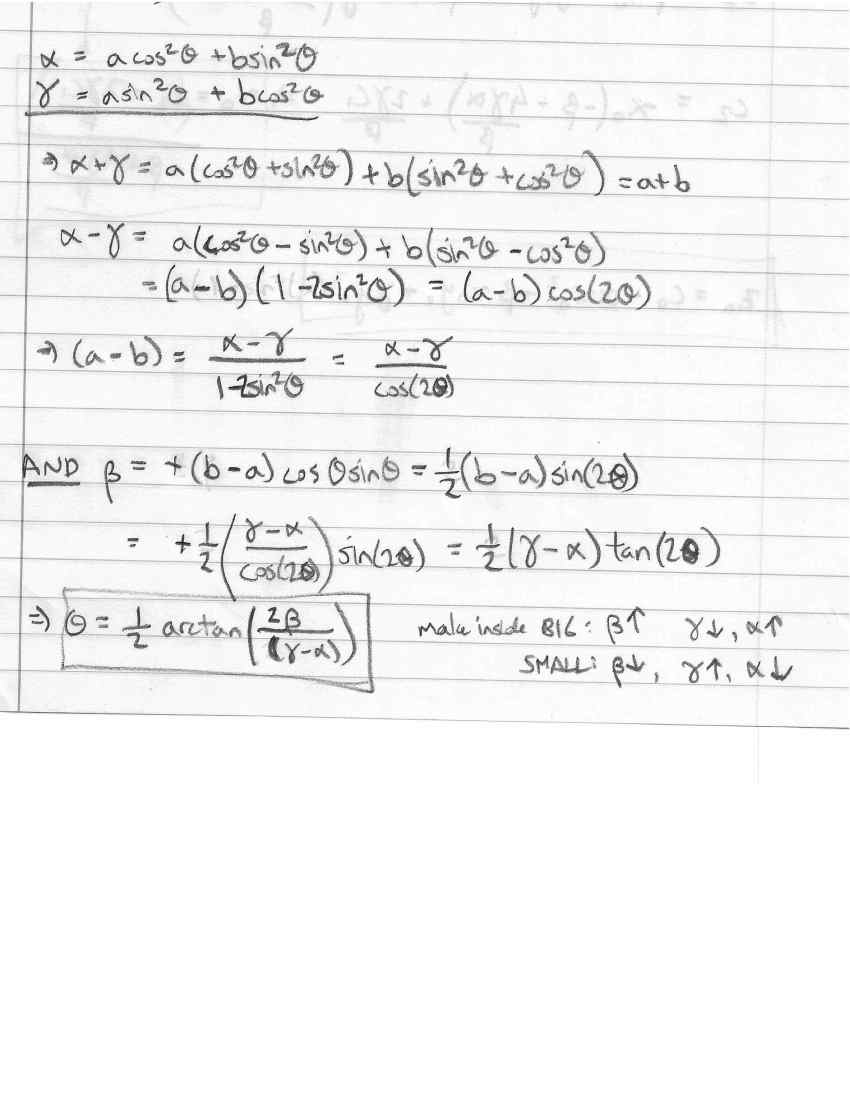 α = a cos²θ + b sin²θ
γ = a sin²θ + b cos²θ
⇒ α+γ = a(cos²θ + sin²θ) + b(sin²θ + cos²θ) = a+b
α - γ = a(cos²θ - sin²θ) + b(sin²θ - cos²θ)
= (a-b)(1-2sin²θ) = (a-b) cos(2θ)
⇒ (a-b) = (α-γ)/(1-2sin²θ) = (α-γ)/(cos(2θ))
AND β = +(b-a) cosθ sinθ = 1/2 (b-a) sin(2θ)
= +1/2 ((γ-α)/(cos(2θ))) sin(2θ) = 1/2 (γ-α) tan(2θ)
⇒ θ = 1/2 arctan(2β/((γ-α))) Make inside BIG: β↑ γ↓, α↑
SMALL: β↓, γ↑, α↓